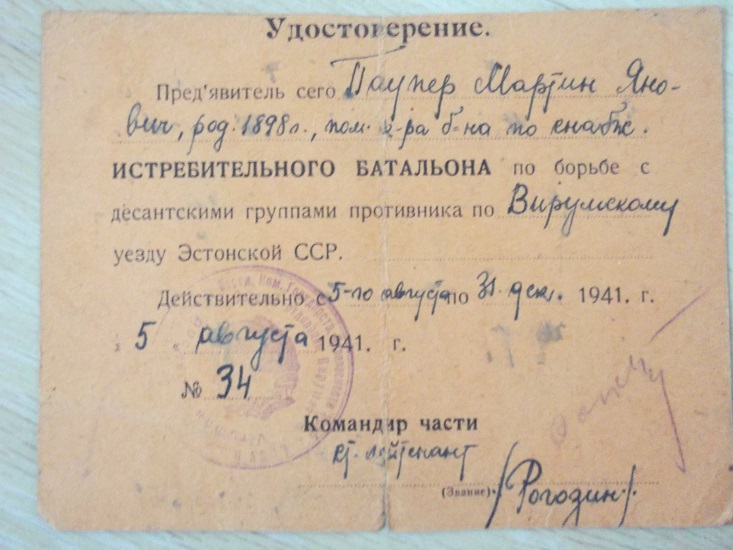 Удостоверение.
Пред'явитель сего Паупер Мартин Яно-
вич, род. 1898 г., пом. к-ра б-на по снабж.
ИСТРЕБИТЕЛЬНОГО БАТАЛЬОНА по борьбе с
десантскими группами противника по Вирумскому
уезду Эстонской ССР.
Действительно с 5-го августа по 31 дек. 1941. г.
5 августа 1941. г.
№ 34
Командир части
ст. лейтенант
(Звание) /Рогозин./